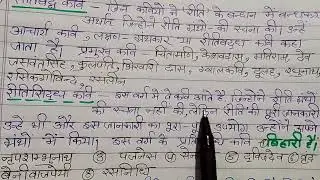 रीतिबद्ध कवि - जिन कवियों ने रीति के बन्धन में बन्धकर
अर्थात जिन्होंने रीति ग्रंथों की रचना की। उन्हें
आचार्य कवि, लक्षण ग्रंथकार, रीतिबद्ध कवि कहा
जाता है। प्रमुख कवि - चिंतामणि, केशवदास, मतिराम, देव
जसवंतसिंह, कुलपति, भिखारी दास, ग्वालकवि, दूलह, रघुनाथ
रसिकगोविन्द, रसलीन
रीतिसिद्ध कवि - इस वर्ग में वे कवि आते हैं, जिन्होंने रीति ग्रंथों
की रचना नहीं की, लेकिन रीति की पूरी जानकारी
उन्हें थी और इस जानकारी का पूरा-पूरा उपयोग उन्होंने अपने
ग्रंथों में किया। इस वर्ग के प्रतिनिधि कवि बिहारी हैं।
नृपशम्भु पजनेस
बेनी वाजपेयी रसनिधि